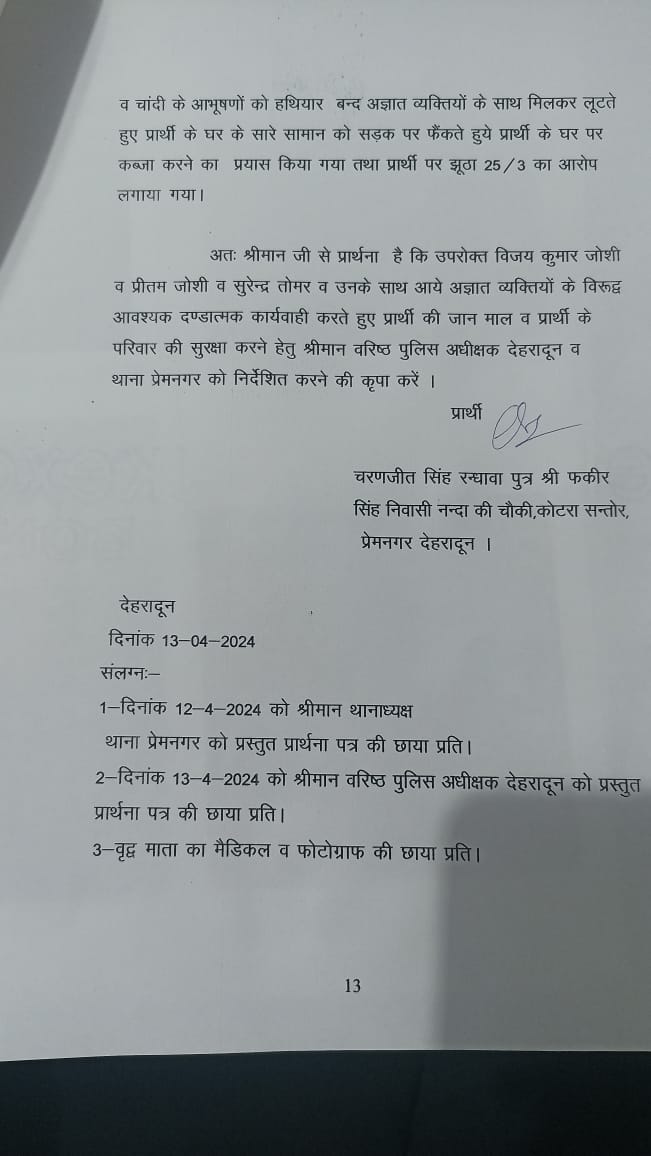 व चांदी के आभूषणों को हथियार बन्द अज्ञात व्यक्तियों के साथ मिलकर लूटते
हुए प्रार्थी के घर के सारे सामान को सड़क पर फैंकते हुये प्रार्थी के घर पर
कब्जा करने का प्रयास किया गया तथा प्रार्थी पर झूठा 25/3 का आरोप
लगाया गया।
अतः श्रीमान जी से प्रार्थना है कि उपरोक्त विजय कुमार जोशी
व प्रीतम जोशी व सुरेन्द्र तोमर व उनके साथ आये अज्ञात व्यक्तियों के विरूद्व
आवश्यक दण्डात्मक कार्यवाही करते हुए प्रार्थी की जान माल व प्रार्थी के
परिवार की सुरक्षा करने हेतु श्रीमान वरिष्ठ पुलिस अधीक्षक देहरादून व
थाना प्रेमनगर को निर्देशित करने की कृपा करें ।
प्रार्थी
चरणजीत सिंह रन्धावा पुत्र श्री फकीर
सिंह निवासी नन्दा की चौकी,कोटरा सन्तोर,
प्रेमनगर देहरादून ।
देहरादून
दिनांक 13–04–2024
संलग्नः–
1–दिनांक 12–4–2024 को श्रीमान थानाध्यक्ष
थाना प्रेमनगर को प्रस्तुत प्रार्थना पत्र की छाया प्रति।
2–दिनांक 13–4–2024 को श्रीमान वरिष्ठ पुलिस अधीक्षक देहरादून को प्रस्तुत
प्रार्थना पत्र की छाया प्रति।
3–वृद्व माता का मैडिकल व फोटोग्राफ की छाया प्रति।
13